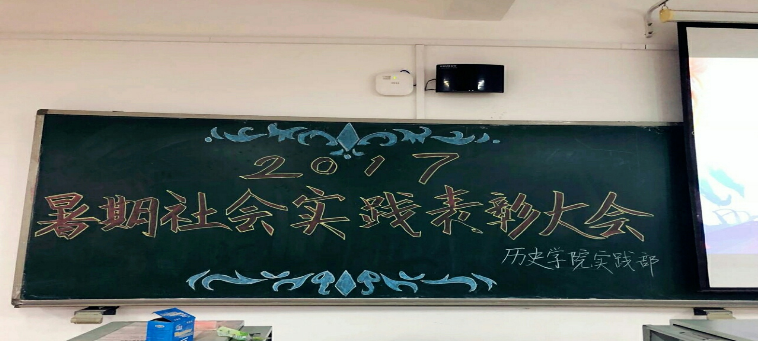 2017
暑期社会实践表彰大会
历史学院实践部